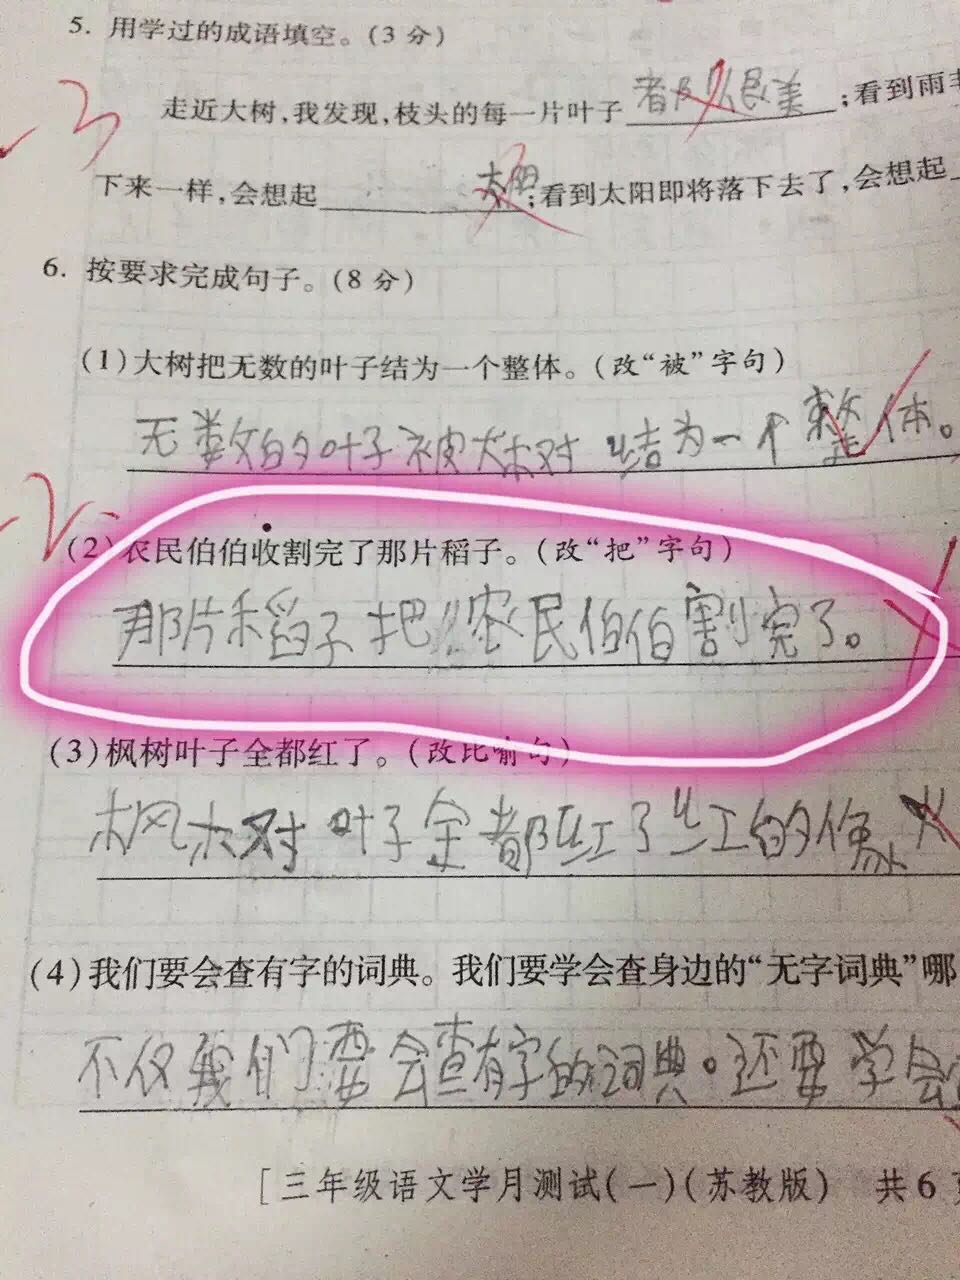 5. 用学过的成语填空。(3分)
走近大树,我发现,枝头的每一片叶子都很美;看到雨
下来一样,会想起太阳;看到太阳即将落下去了,会想起
6. 按要求完成句子。(8分)
(1)大树把无数的叶子结为一个整体。(改“被”字句)
无数的叶子被大树结为一个整体。
(2)农民伯伯收割完了那片稻子。(改“把”字句)
那片稻子把农民伯伯割完了。
(3)枫树叶子全都红了。(改比喻句)
枫树叶子全都红了红的像火
(4)我们要会查有字的词典。我们要学会查身边的“无字词典”哪
不仅我们要会查有字的词典。还要学会
[三年级语文学月测试(一)(苏教版) 共6